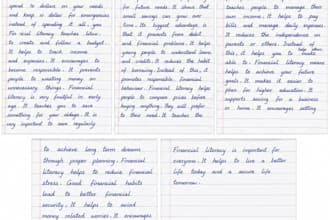 spend to dollars on your needs
and keep to dollar for emergencies
instead of spending it all you.
For real literacy teaches how
to create and follow a budget.
It helps to track income
and expenses. It encourages to
become responsible. It prevents
people to wasting money on
unnecessary things. Financial
literacy is very fruitful in early
age. It teaches you to save
something for your oldage. It is
very important to save regularly
for future needs. It shows that
small savings can grow over
time. Its biggest advantage is
that it prevents from debt
and financial problems. It helps
young people to understand loans
and credits. It reduces the habit
of borrowing. Instead of this, it
promotes responsible financial
behaviour. Financial literacy helps
people to compare prices before
buying anything, they will prefer
to their need. It teaches to
teaches people to manage their
own income. It helps to pay
bills and manage daily expenses.
It reduces the independence on
parents or others. Instead of
this, it helps you to
able to. Financial literacy means
helps to achieve your future
goals. It makes it easier to
plan for higher education. It
supports saving for a business
or home. It encourages setting
to achieve long term dreams
through proper planning. Financial
literacy helps to reduce financial
stress. Good financial habits
lead to better financial
security. It helps to avoid
money related worries. It encourages
Financial literacy is important for
everyone. It helps to live a better
life today and a secure life
tomorrow.